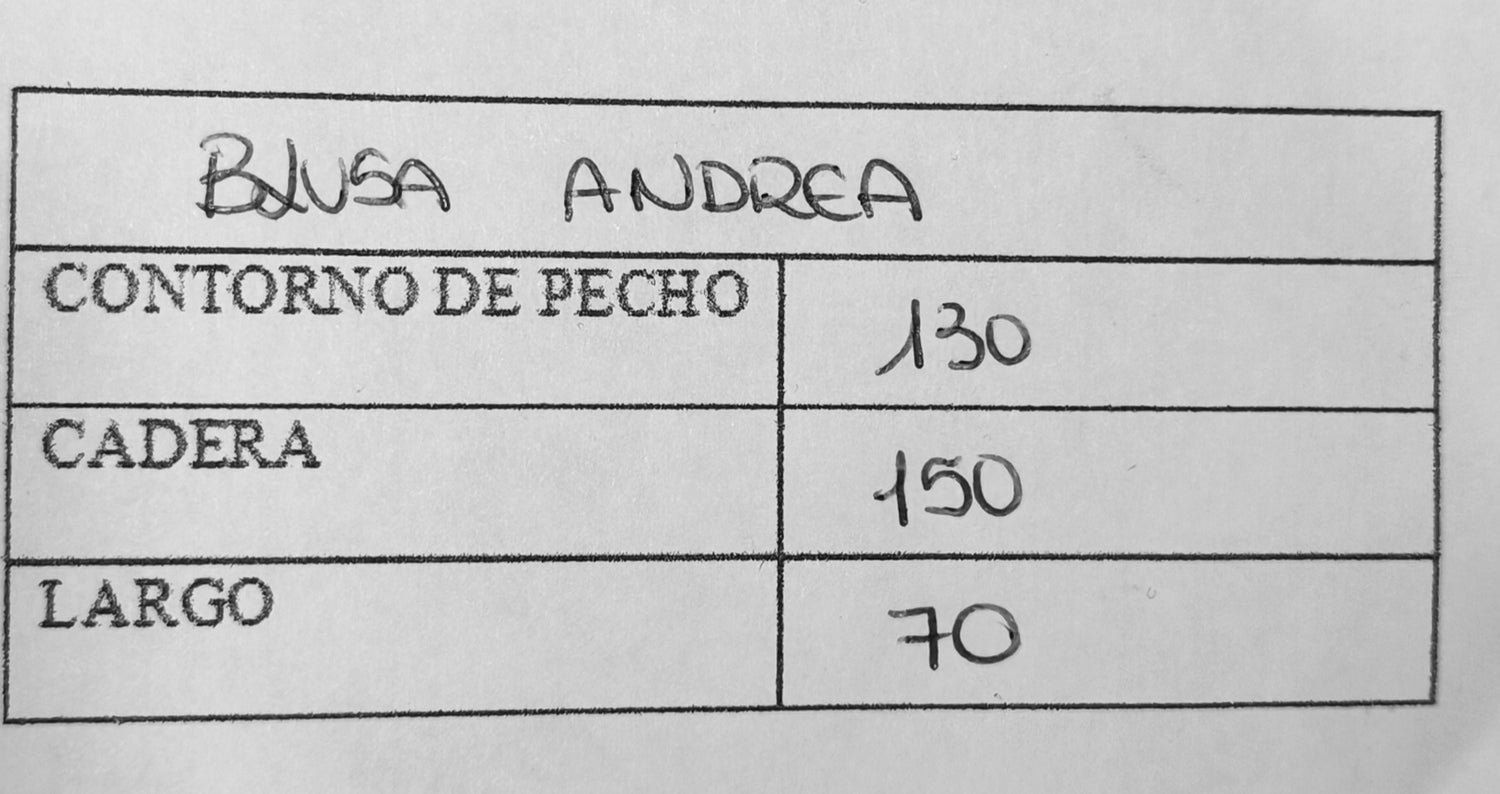 BLUSA ANDREA
CONTORNO DE PECHO 130
CADERA 150
LARGO 70